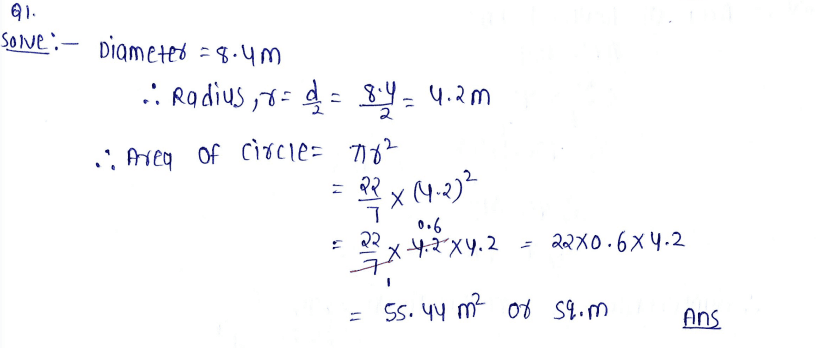 Q1.
Solve :- Diameter = 8.4m
∴ Radius, r = d/2 = 8.4/2 = 4.2m
∴ Area of circle = πr²
= 22/7 × (4.2)²
= 22/7 × 4.2 × 4.2 = 22×0.6×4.2
0.6
1
= 55.44 m² or sq.m Ans